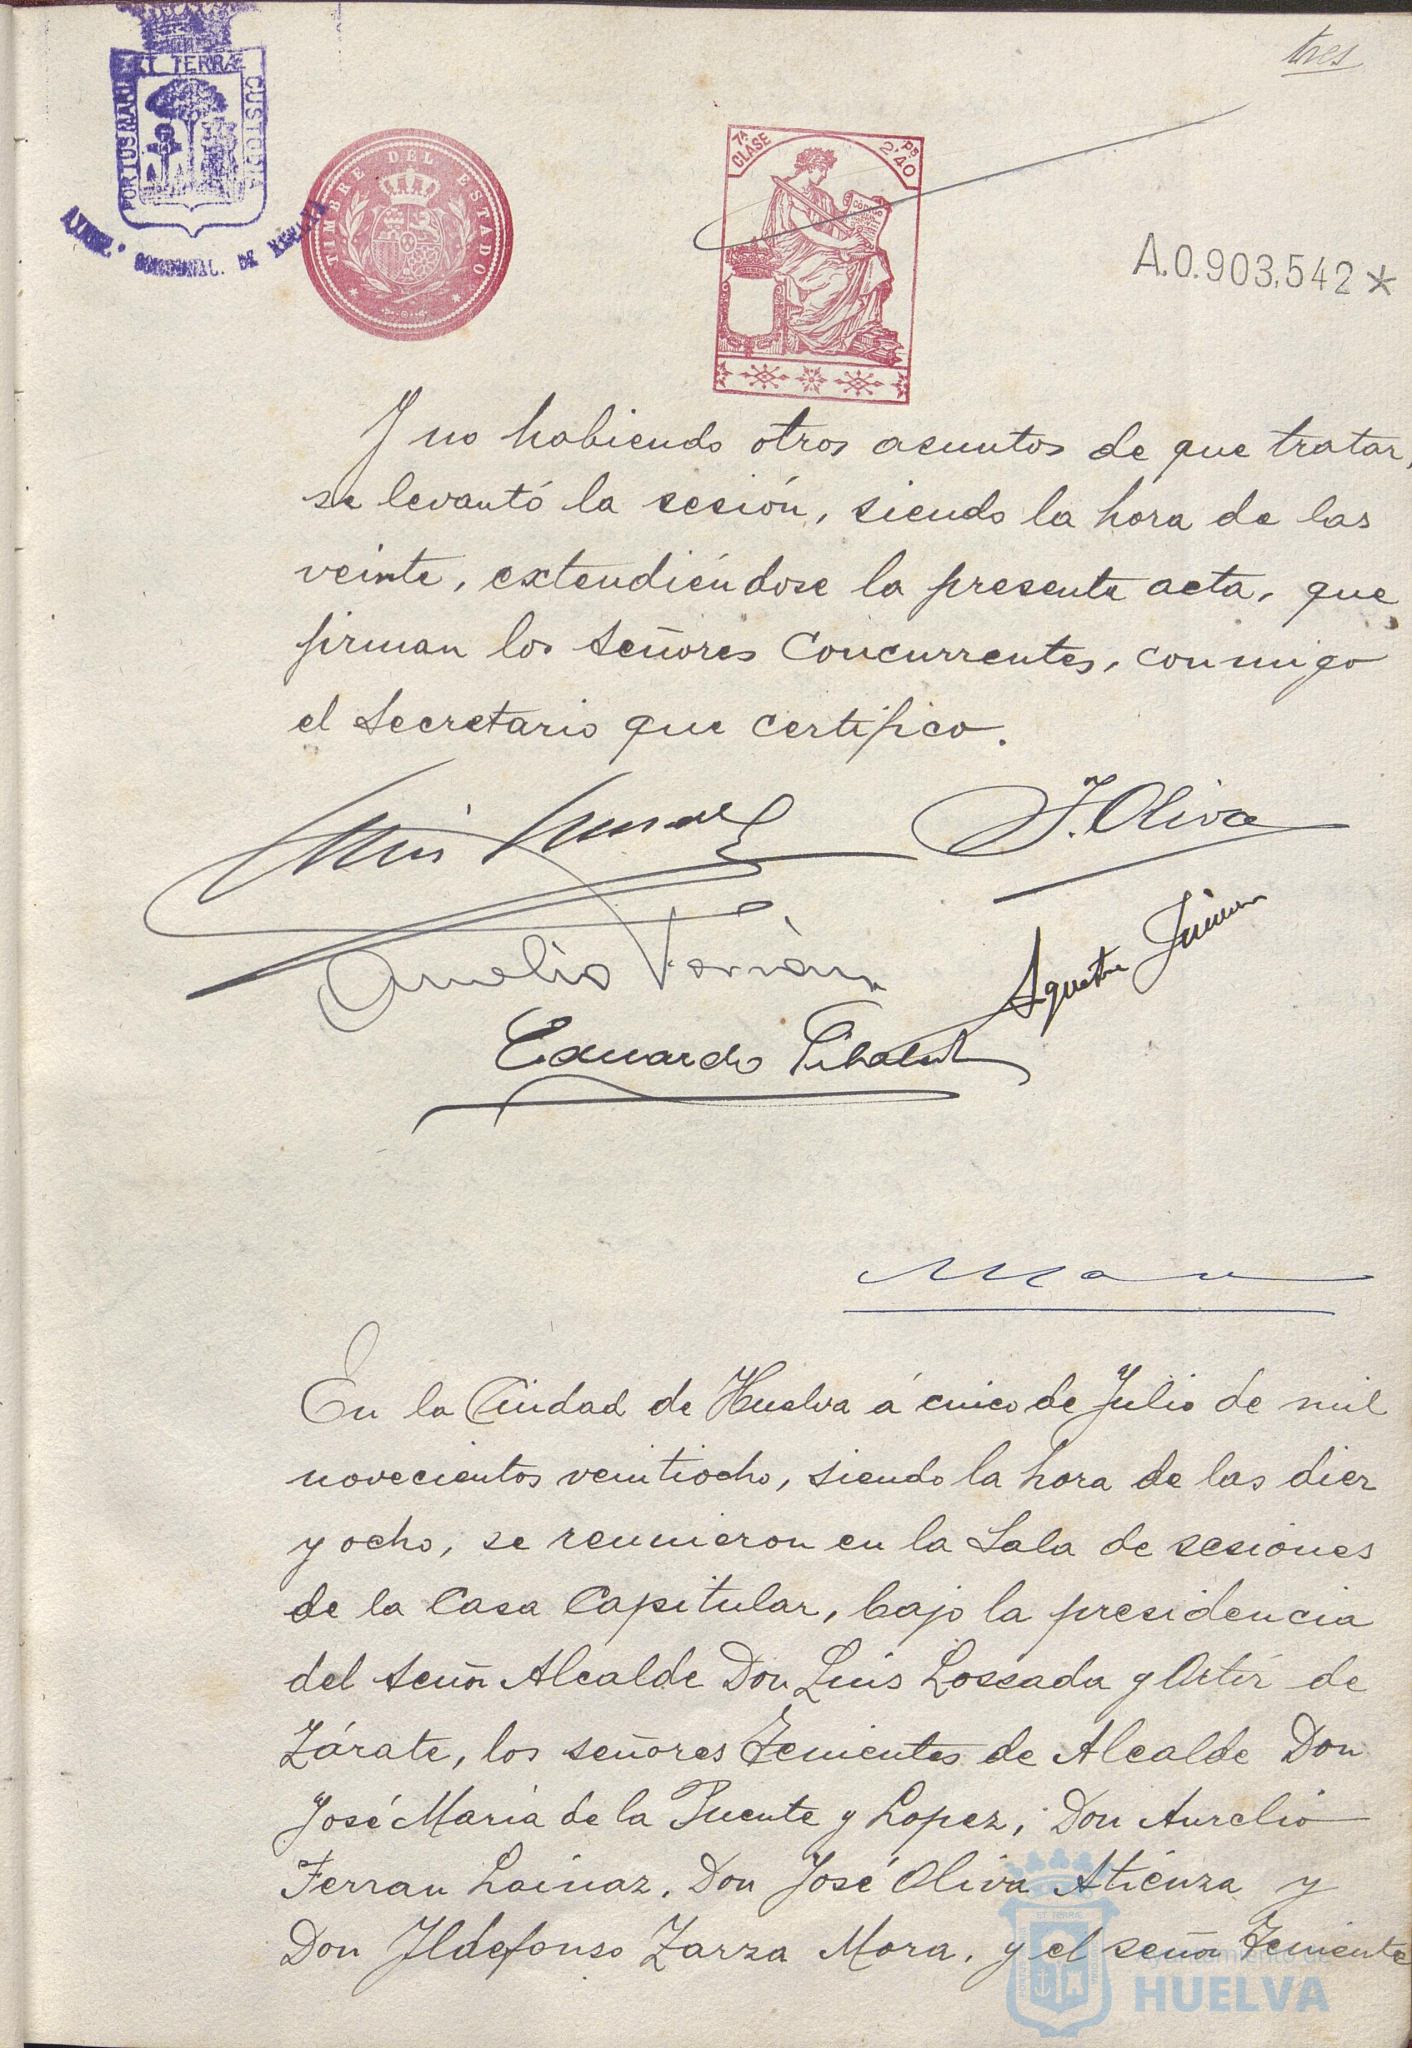 tres
PORTUS MARIS ET TERRÆ CUSTODIA
TIMBRE DEL ESTADO
7ª CLASE
2,40 Ps
A.0.903,542*
Y no habiendo otros asuntos de que tratar,
se levantó la sesión, siendo la hora de las
veinte, extendiéndose la presente acta, que
firman los señores concurrentes, conmigo
el Secretario que certifico.
J. Oliva
Aurelio
Eduardo
En la Ciudad de Huelva á cinco de Julio de mil
novecientos veintiocho, siendo la hora de las diez
y ocho, se reunieron en la Sala de sesiones
de la Casa Capitular, bajo la presidencia
del señor Alcalde Don Luis Lossada y Ortiz de
Zárate, los señores Tenientes de Alcalde Don
José María de la Puente y Lopez, Don Aurelio
Ferran Lainaz, Don José Oliva Atienza y
Don Ildefonso Zarza Mora, y el señor Teniente
Ayuntamiento de
HUELVA